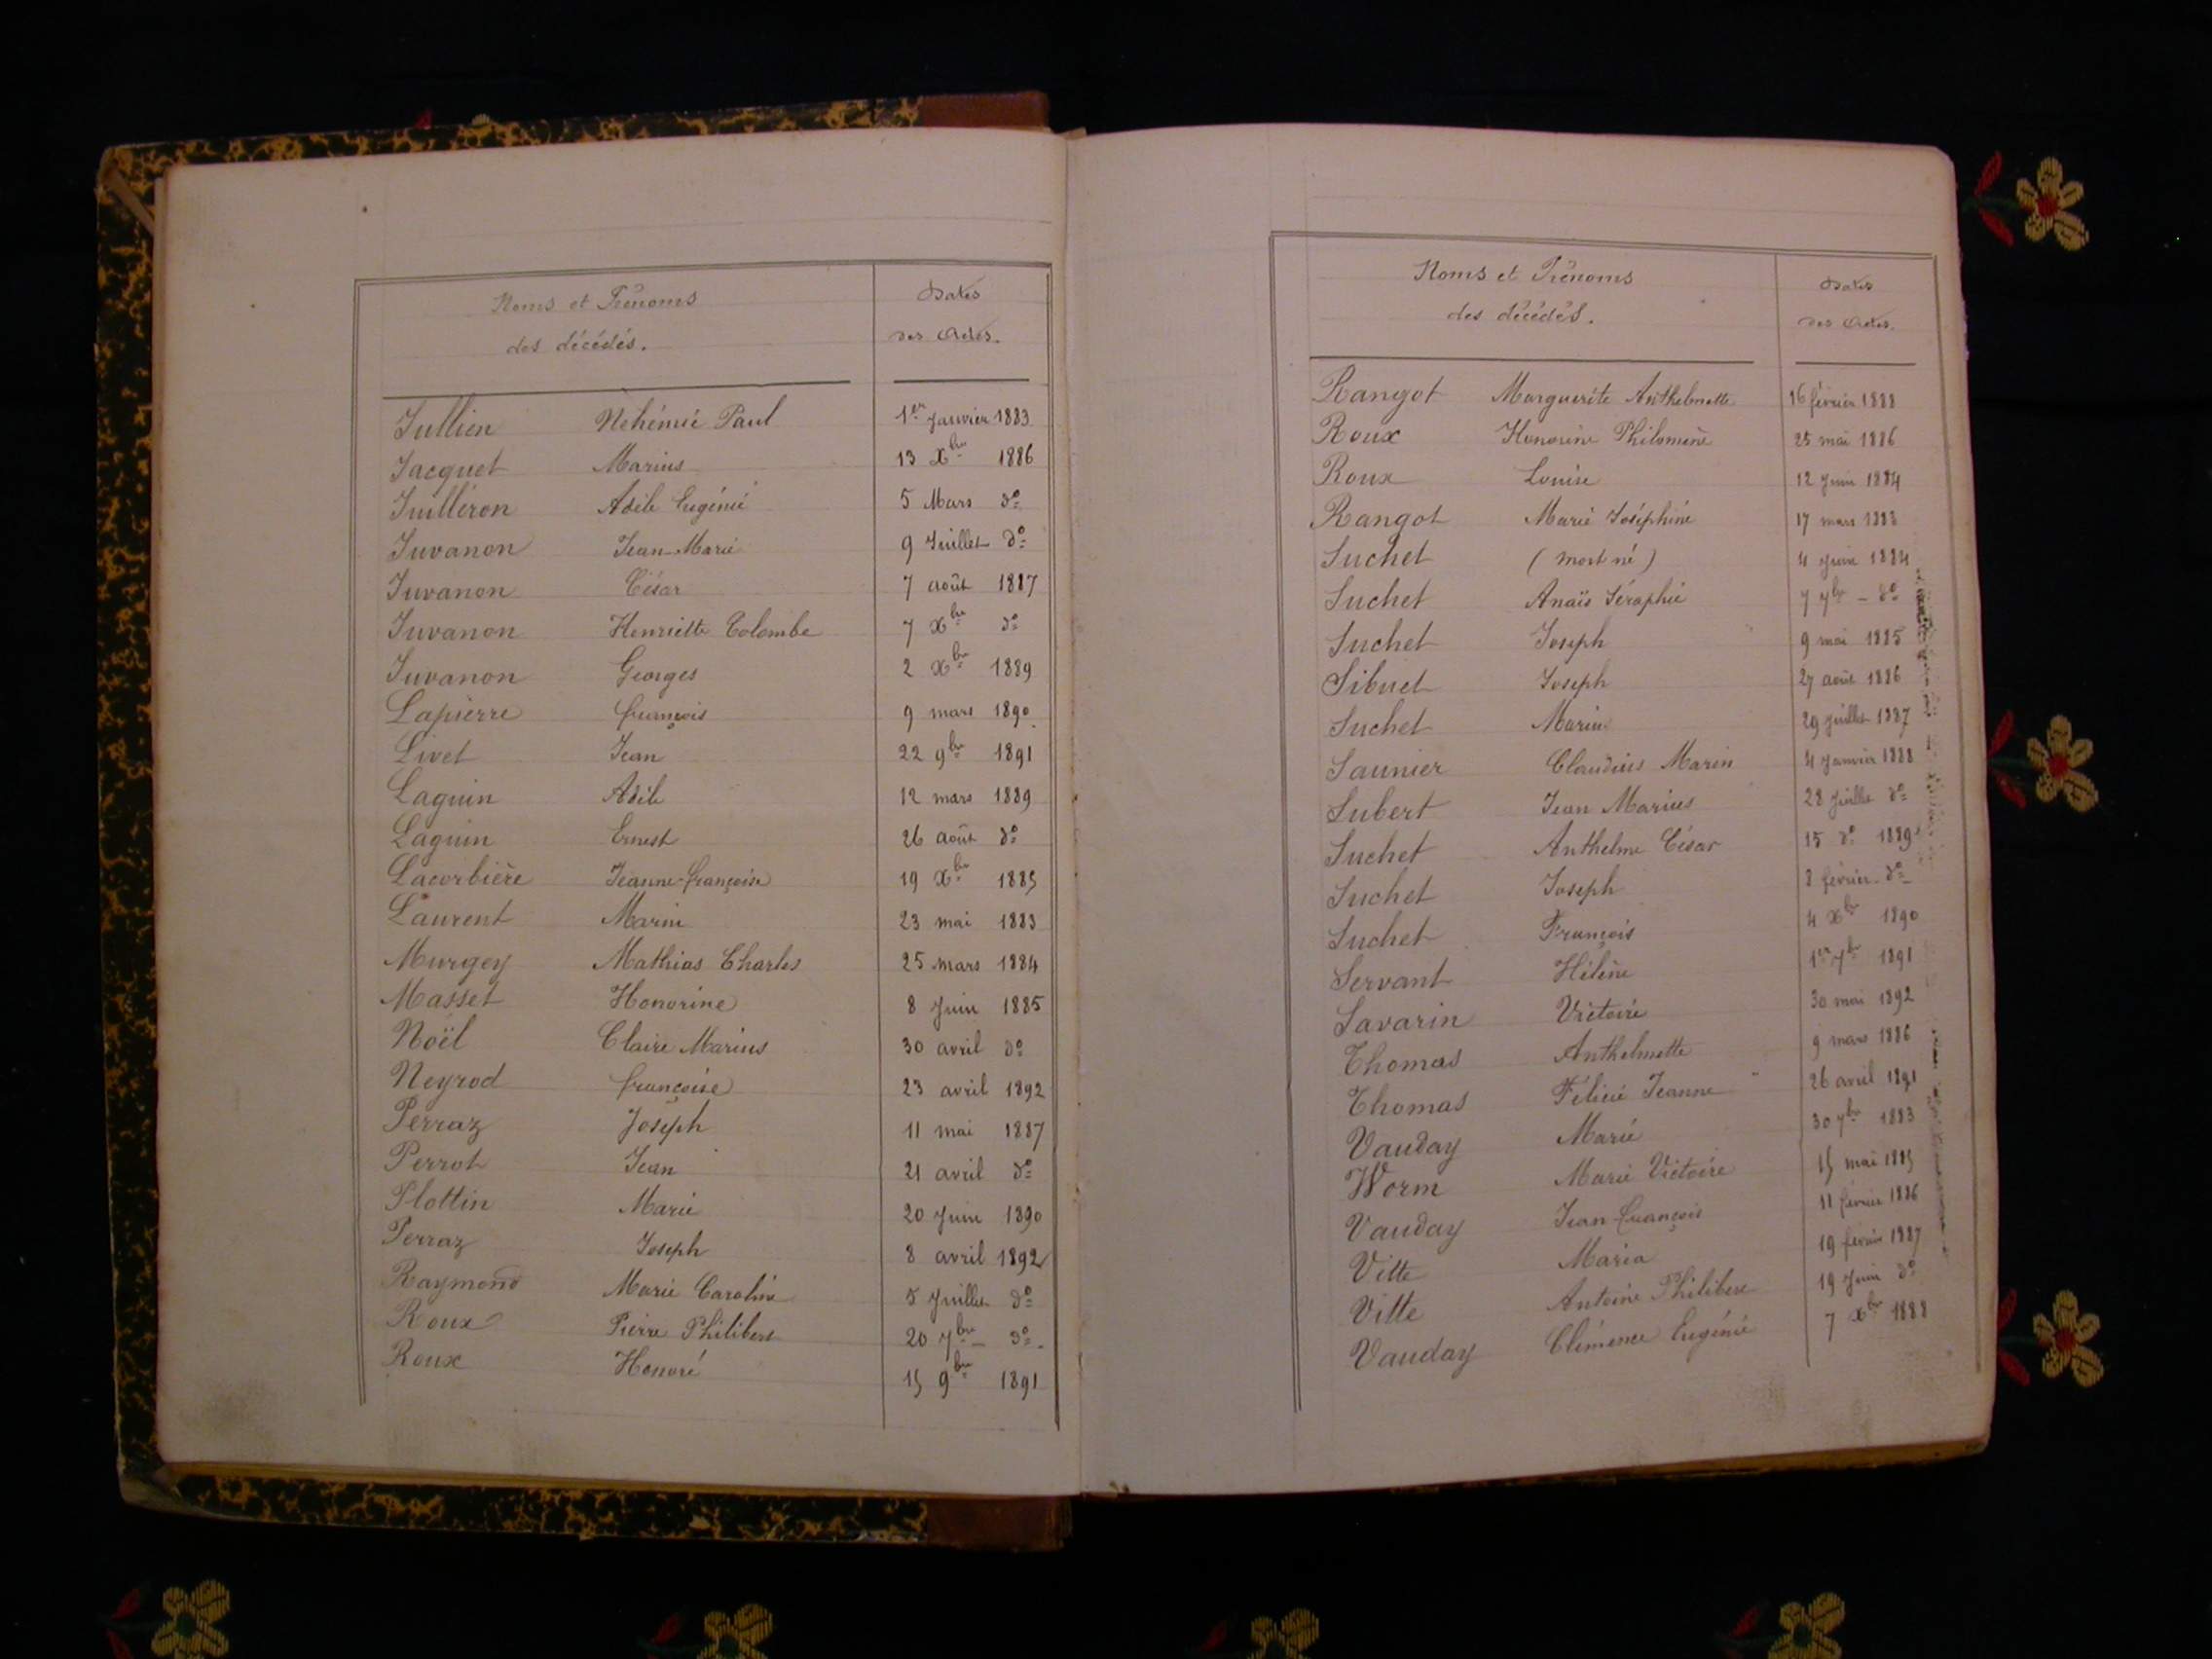 Noms et Prénoms
des décédés.
Dates
des Actes.
Jullien Néhémié Paul 1er Janvier 1883
Jacquet Marius 13 Xbre 1886
Juilléron Adèle Eugénie 5 Mars do
Juvanon Jean-Marie 9 Juillet do
Juvanon César 7 août 1887
Juvanon Henriette Colombe 7 Xbre do
Juvanon Georges 2 Xbre 1889
Lapierre françois 9 mars 1890
Livet Jean 22 9bre 1891
Laguin Adèle 12 mars 1889
Laguin Ernest 26 août do
Lacorbière Jeanne-françoise 19 Xbre 1885
Laurent Marie 23 mai 1883
Murgey Mathias Charles 25 mars 1884
Masset Honorine 8 Juin 1885
Noël Claire Marius 30 avril do
Neyrod françoise 23 avril 1892
Perraz Joseph 11 mai 1887
Perrot Jean 21 avril do
Plottin Marie 20 Juin 1890
Perraz Joseph 8 avril 1892
Raymond Marie Caroline 5 Juillet do
Roux Pierre Philibert 20 7bre – do
Roux Honoré 15 9bre 1891
Noms et Prénoms
des décédés.
Dates
des Actes.
Rangot Marguerite Anthelmette 16 février 1888
Roux Honorine Philomène 25 mai 1886
Roux Louise 12 Juin 1884
Rangot Marie Joséphine 17 mars
Suchet (mort né) 4 Juin 1884
Suchet Anaïs Séraphie 7 7bre – do
Suchet Joseph 9 mai 1885
Sibuet Joseph 27 août 1886
Suchet 29 Juillet 1887
Saunier Claudius Marin 4 Janvier 1888
Subert Jean Marius 28 Juillet do
Suchet Anthelme César 15 do 1889
Suchet Joseph 8 février do
Suchet François 4 Xbre 1890
Servant Hélène 1er 7bre 1891
Savarin Victoire 30 mai 1892
Thomas Anthelmette 9 mars 1886
Thomas Félicie Jeanne 26 avril 1891
Vauday Marie 30 7bre 1883
Worm Marie Victoire 15 mai 1885
Vauday Jean françois 11 février 1886
Vitte Maria 19 février 1887
Vitte Antoine Philibert 19 Juin do
Vauday Clémence Eugénie 7 Xbre 1888